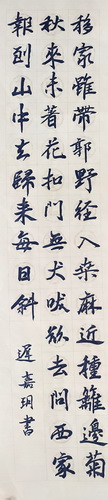 移家雖帶郭野径入桒麻近種籬邊菊
秋來未著花扣門無犬吠欲去問西家
報到山中去歸来每日斜
遲嘉玥書